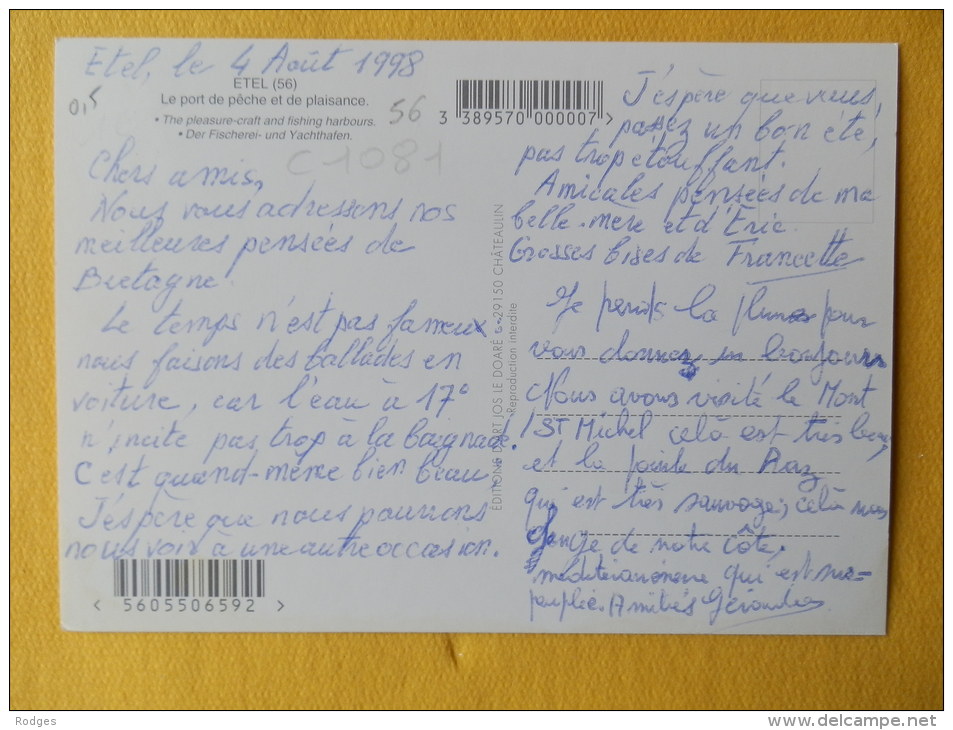 Etel, le 4 Août 1998
ETEL (56)
Le port de pêche et de plaisance.
• The pleasure-craft and fishing harbours.
• Der Fischerei- und Yachthafen.
0,5
56
C1081
3 389570 000007 >
Chers amis,
Nous vous adressons nos
meilleures pensées de
Bretagne.
Le temps n'est pas fameux
nous faisons des ballades en
voiture, car l'eau à 17°
n'incite pas trop à la baignade.
C'est quand-même bien beau,
J'espère que nous pourrons
nous voir à une autre occasion.
< 5605506592 >
EDITIONS D'ART JOS LE DOARÉ 29150 CHÂTEAULIN
Reproduction interdite
J'espère que vous,
passez un bon été,
pas trop étouffant.
Amicales pensées de ma
belle-mère et d'Eric.
Grosses bises de Francette
Je prends la plume pour
vous donner un bonjour
Nous avons visité le Mont
ST Michel celà est très beau,
et la pointe du Raz
qui est très sauvage, celà nous
change de notre côte
méditerranéenne qui est sur=
peuplée. Amitiés
Rodges
www.delcampe.net